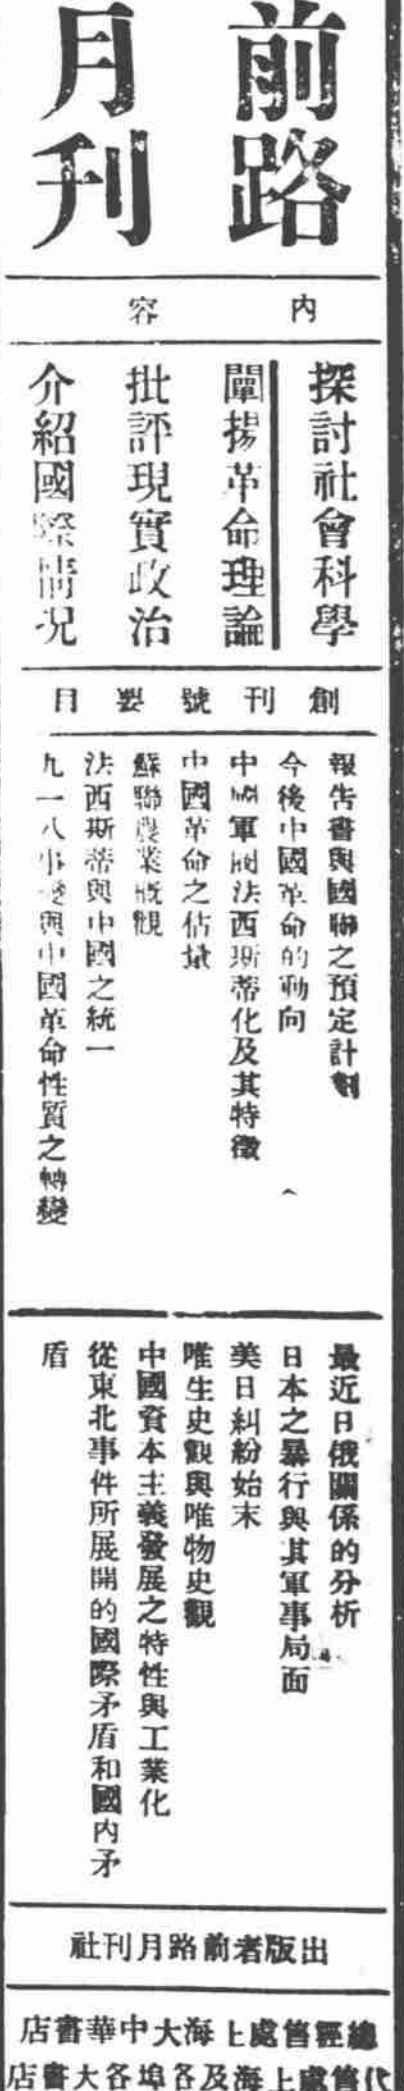 前路
月刊
內容
探討社會科學
闡揚革命理論
批評現實政治
介紹國際情况
創刊號要目
報告書與國聯之預定計劃
今後中國革命的動向
中國軍閥法西斯蒂化及其特徵
中國革命之估量
蘇聯農業概觀
法西斯蒂與中國之統一
九一八事變與中國革命性質之轉變
最近日俄關係的分析
日本之暴行與其軍事局面
美日糾紛始末
唯生史觀與唯物史觀
中國資本主義發展之特性與工業化
從東北事件所展開的國際矛盾和國內矛
盾
出版者前路月刊社
總經售處上海大中華書店
代售處上海及各埠各大書店